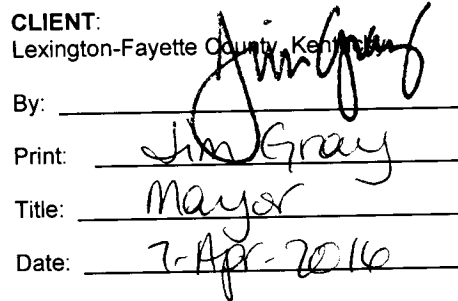 CLIENT:
Lexington-Fayette County, Kentucky
By: Jim Gray
Print: Jim Gray
Title: Mayor
Date: 7-Apr-2016